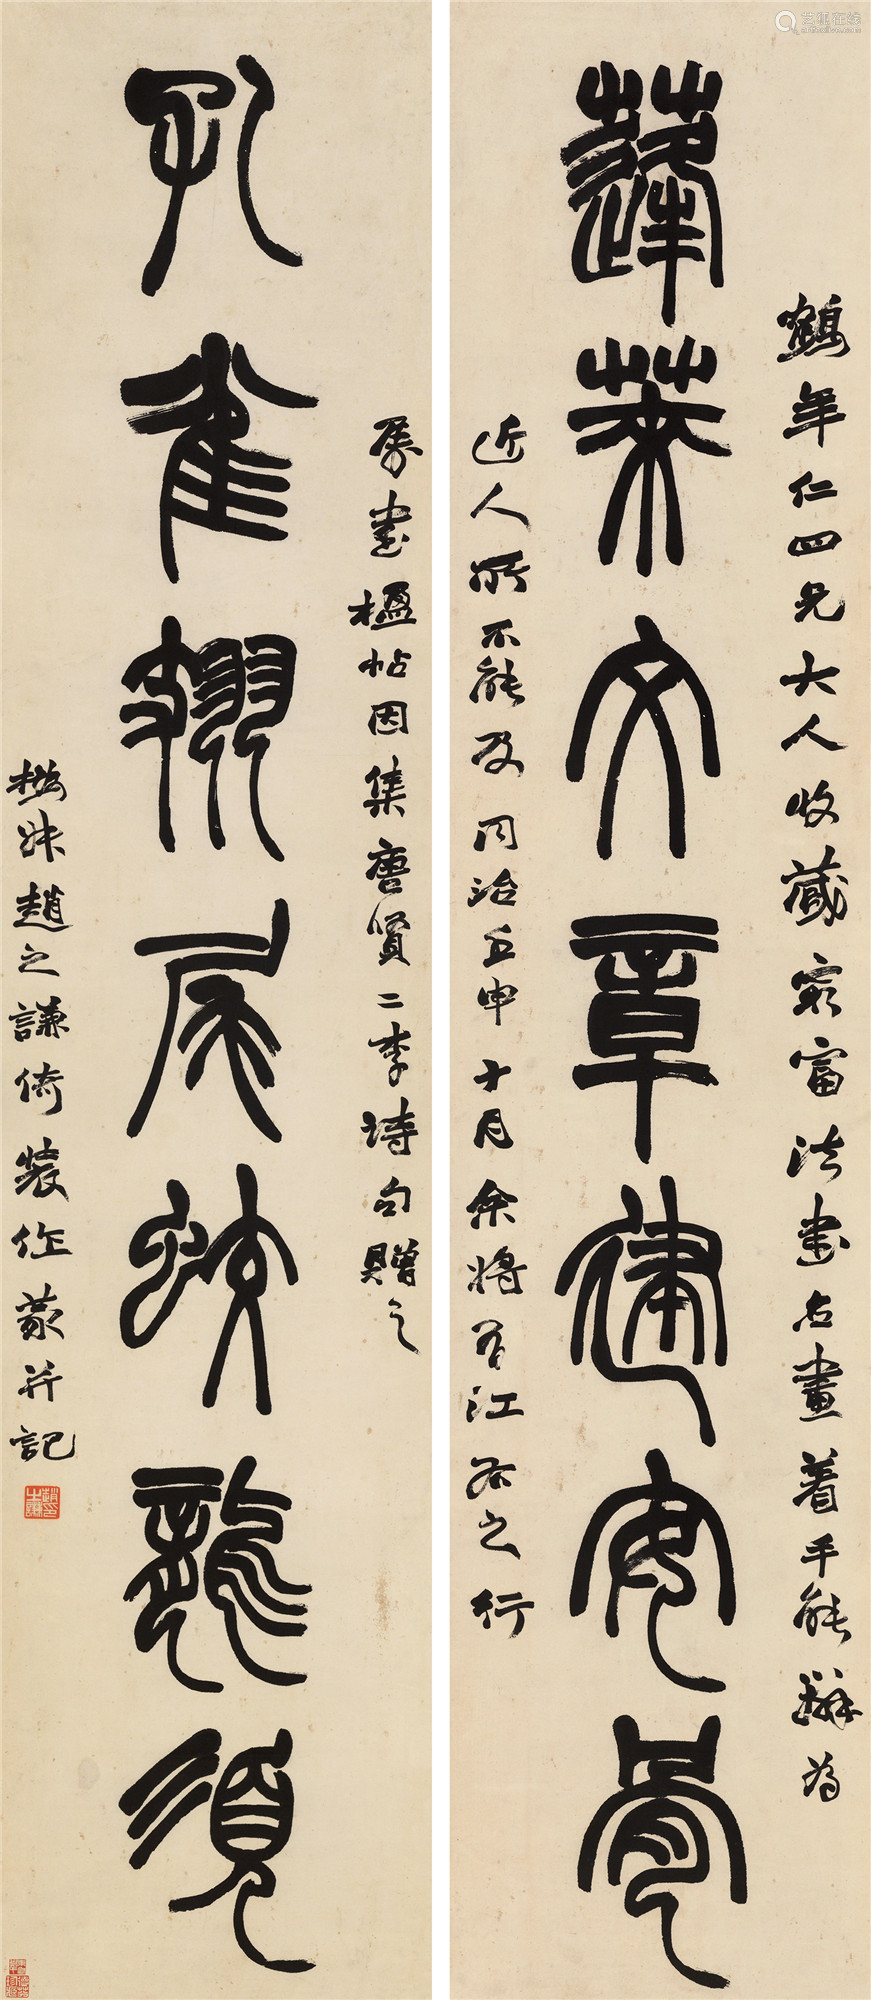 蓬莱文章建安骨
鶴年仁四兄大人收藏最富法書名畫着手能辨為
近人所不能及同治壬申十月余將有江右之行
孔雀翠尾蛟龍須
属書楹帖因集唐賢二李詩句贈之
撝叔趙之謙倚裝作篆并記